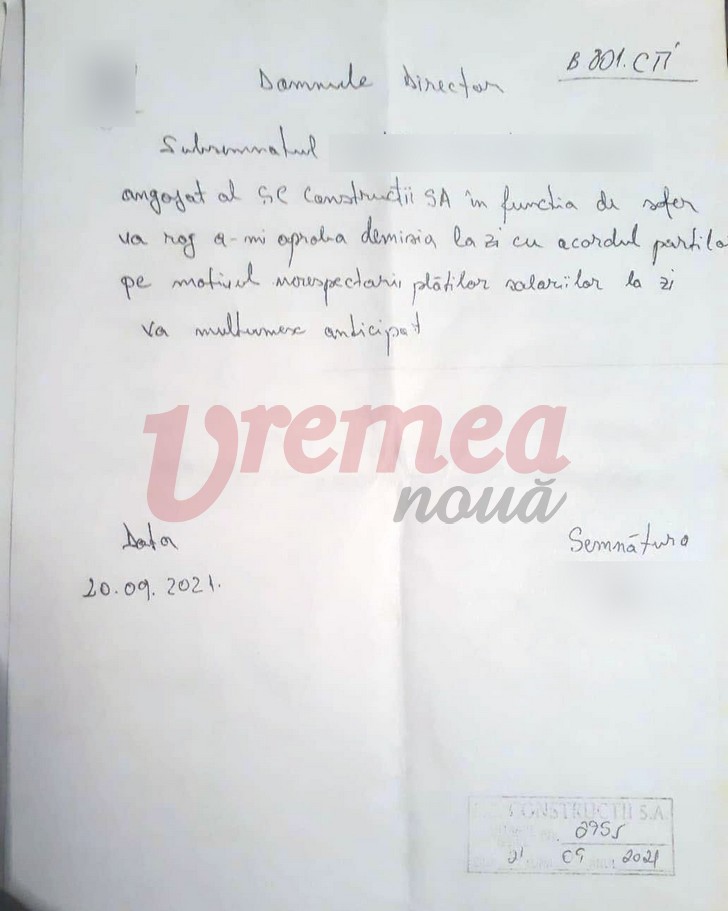 B 801.CTI
Domnule Director
Subsemnatul
angajat al SC Constructii SA în functia de sofer
va rog a-mi aproba demisia la zi cu acordul partilo
pe motivul nerespectarii plătilor salariilor la zi
Va multumesc anticipat
Vremea
nouă
Data
Semnătura
20.09.2021.
CONSTRUCTII S.A.
2955
21 09 2021